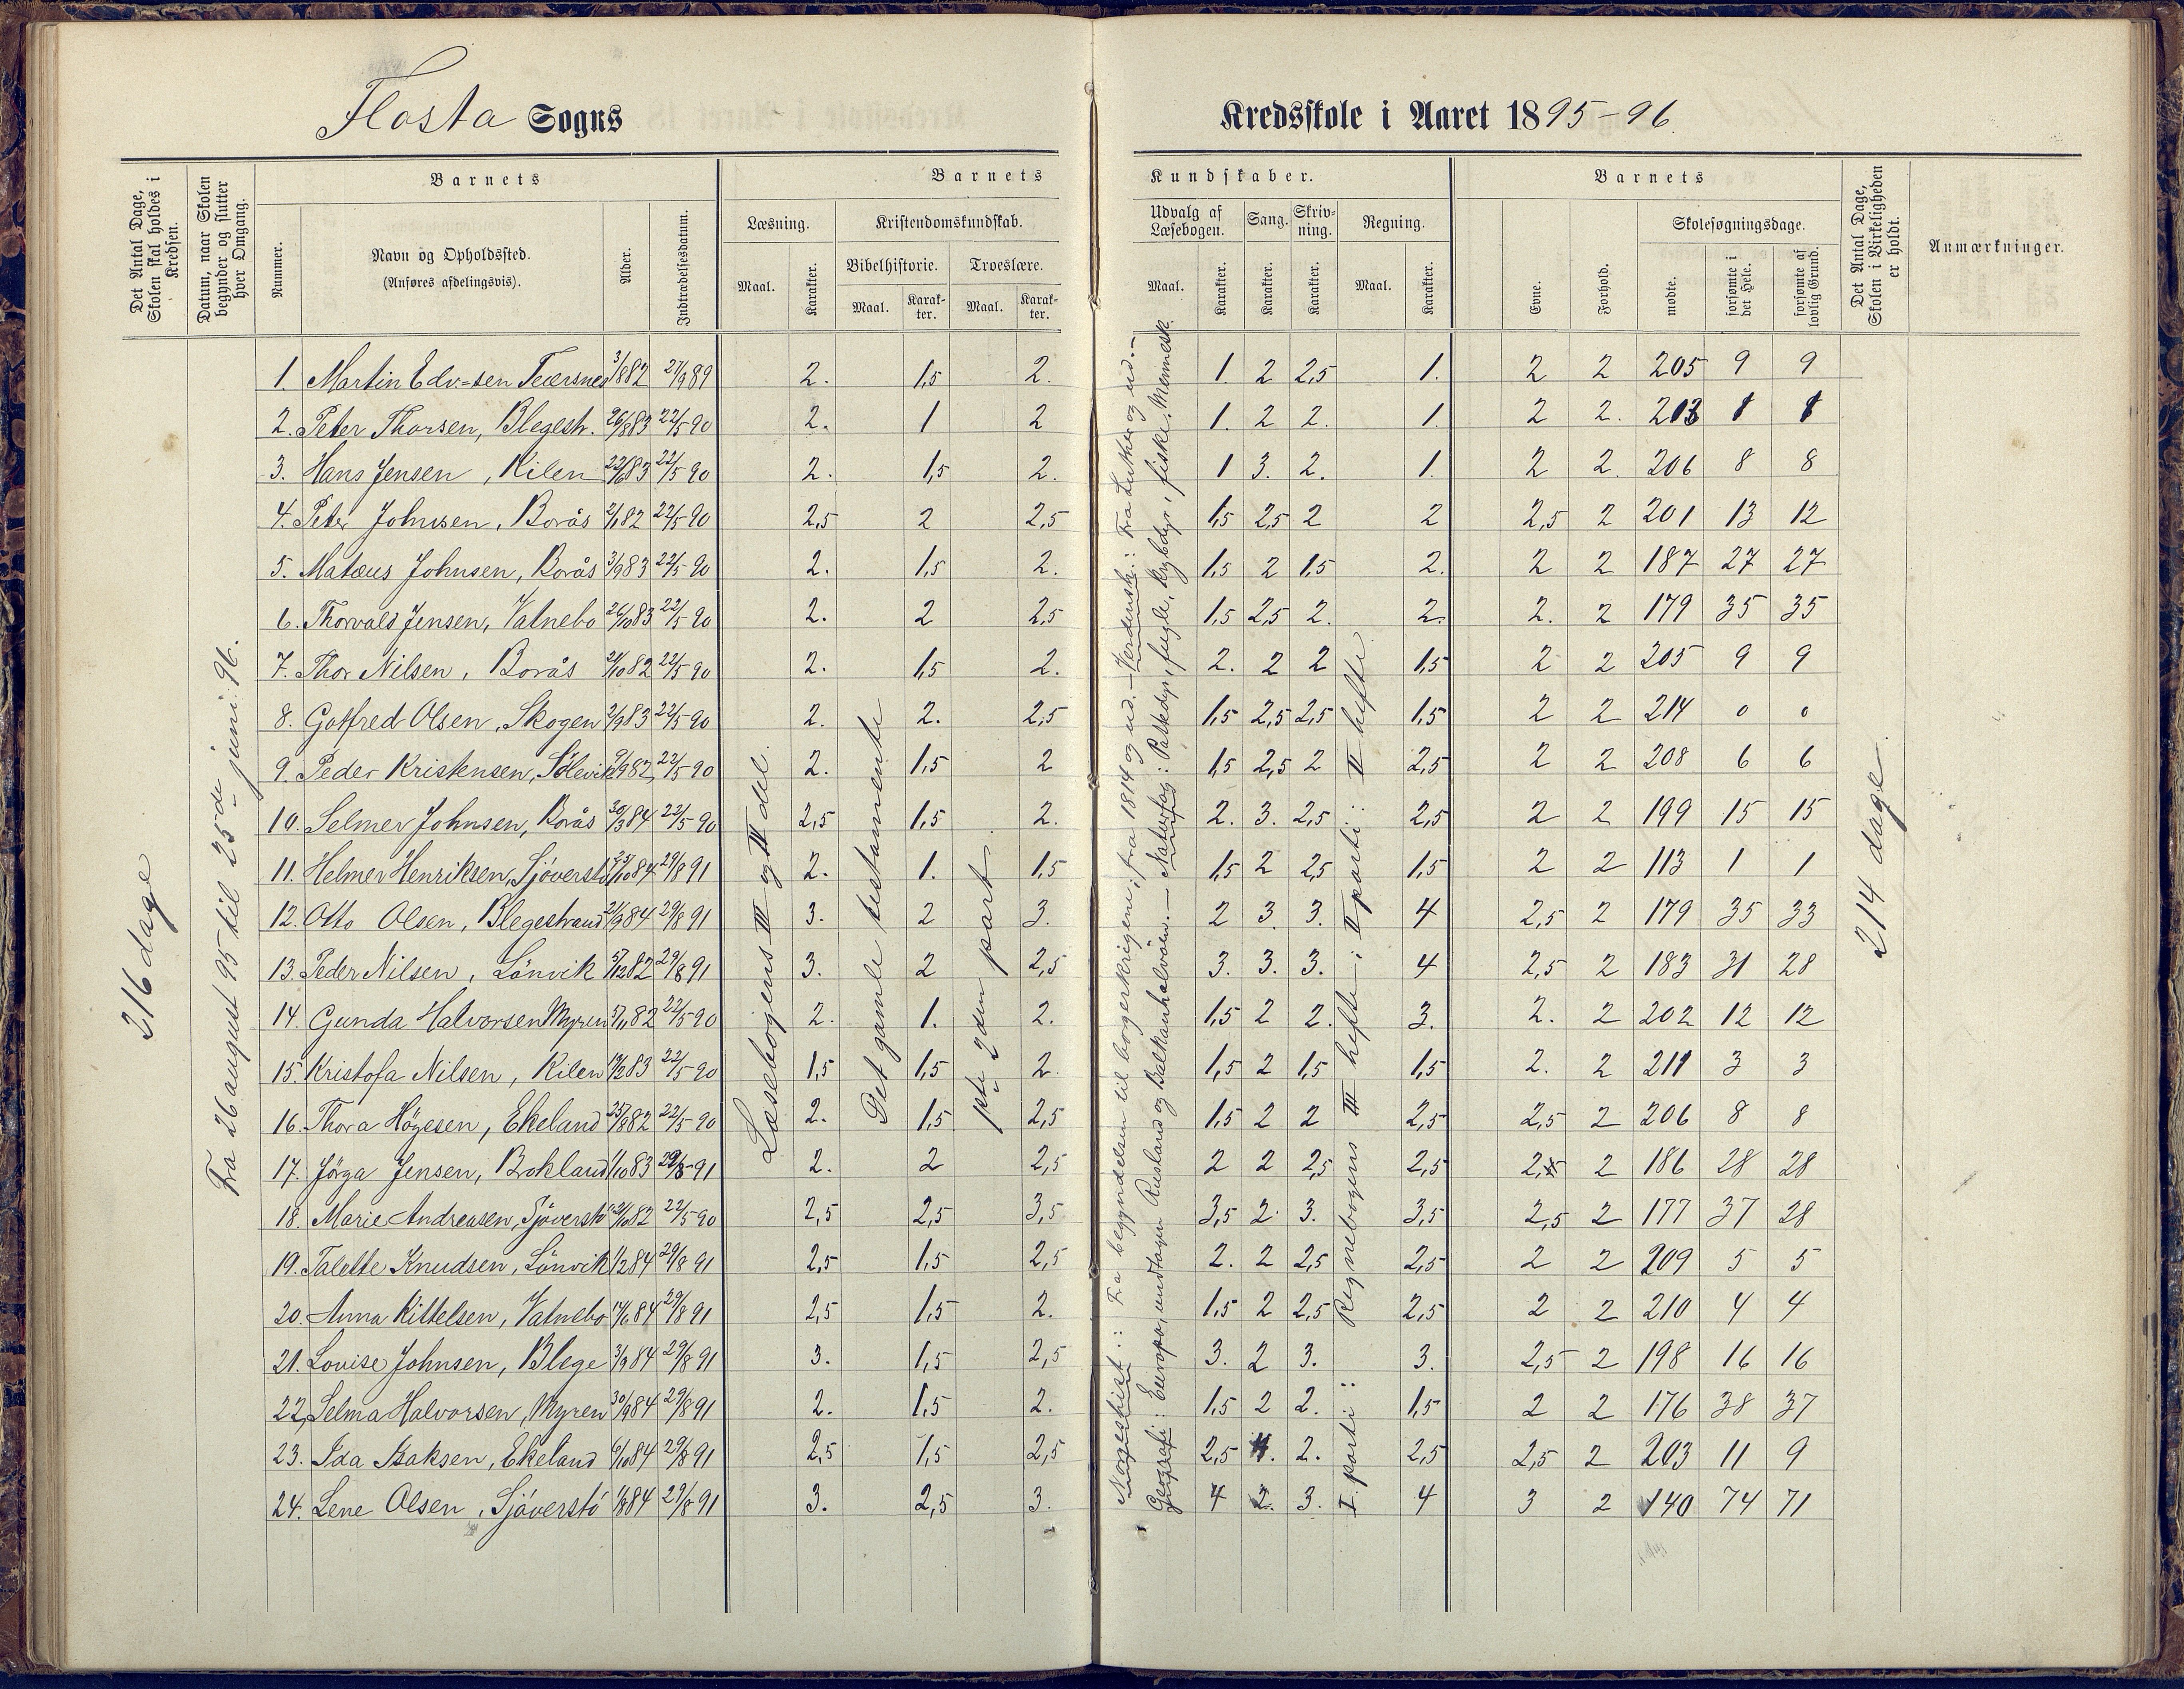 Flosta Sogns
Kredsskole i Aaret 1895-96.
Det Antal Dage, Skolen skal holdes i Kredsen.
Datum, naar Skolen begynder og slutter hver Omgang.
Barnets
Nummer.
Navn og Opholdssted.
(Anføres afdelingsvis).
Alder.
Indtrædelsesdatum.
Barnets
Læsning.
Maal.
Karakter.
Kristendomskundskab.
Bibelhistorie.
Maal.
Karakter.
Troeslære.
Maal.
Karakter.
Kundskaber.
Udvalg af Læsebogen.
Maal.
Karakter.
Sang.
Karakter.
Skrivning.
Karakter.
Regning.
Maal.
Karakter.
Barnets
Evne.
Forhold.
Skolesøgningsdage.
mødte.
forsømte i det Hele.
forsømte af lovlig Grund.
Det Antal Dage, Skolen i Virkeligheden er holdt.
Anmærkninger.
216 dage
Fra 26 august 95 til 25de juni 96.
Læsebogens III og IV del.
Det gamle testamente
pts 2den part.
Fra begyndelsen til borgerkrigene; fra 1814 og ud. — Verdensh.: Fra Luther og ud. —
Geografi: Europa, undtagen Rusland og Balkanhalvöen. — Naturfag: Pattedyr, fugle, krybdyr, fiske. Mennesk.
I parti :: Regnebogens III hefte: II parti :: II hefte.
214 dage.
1. Martin Edv=sen 3/8 82 27/9 89 2. 1,5 2. 1. 2 2,5 1. 2 2 205 9 9
2. Peter Thorsen, Blegestr. 26/8 83 22/5 90 2. 1 2 1. 2 2. 1. 2 2. 213 1 1
3. Hans Jensen, Kilen 22/6 83 22/5 90 2. 1,5 2. 1 3. 2. 1. 2 2. 206 8 8
4. Peter Johnsen, Borås 2/1 82 22/5 90 2,5 2 2,5 1,5 2,5 2 2 2,5 2 201 13 12
5. Matæus Johnsen, Borås 3/9 83 22/5 90 2. 1,5 2. 1,5 2 1,5 2. 2 2 187 27 27
6. Thorvald Jensen, Vatnebo 26/10 83 22/5 90 2. 2 2,5 1,5 2,5 2. 2. 2. 2 179 35 35
7. Thor Nilsen, Borås 21/10 82 22/5 90 2. 1,5 2. 2. 2 2 1,5 2 2 205 9 9
8. Gotfred Olsen, Skogen 2/9 83 22/5 90 2. 2. 2,5 1,5 2,5 2,5 1,5 2 2 214 0 0
9. Peder Kristensen, Sölevik 9/9 82 22/5 90 2. 1,5 2 1,5 2,5 2 2,5 2 2 208 6 6
10. Selmer Johnsen, Borås 30/3 84 22/5 90 2,5 1,5 2. 2. 3. 2,5 2,5 2 2 199 15 15
11. Helmer Henriksen, Sjöverstö 25/10 84 29/8 91 2. 1. 1,5 1,5 2 2,5 1,5 2 2 113 1 1
12. Otto Olsen, Blegestrand 21/9 84 29/8 91 3. 2 3. 2 3. 3. 4 2,5 2 179 35 33
13. Peder Nilsen, Lönvik 5/12 82 29/8 91 3. 2 2,5 3. 3. 3. 4 2,5 2 183 31 28
14. Gunda Halvorsen Myren 5/11 82 22/5 90 2. 1. 2. 1,5 2 2. 3. 2. 2 202 12 12
15. Kristofa Nilsen, Kilen 19/2 83 22/5 90 1,5 1,5 2 1,5 2 1,5 1,5 2. 2 211 3 3
16. Thora Högesen, Ekeland 25/8 82 22/5 90 2. 1,5 2,5 1,5 2 2 2,5 2,5 2 206 8 8
17. Jörga Jensen, Brokland 1/10 83 29/8 91 2. 2 2,5 2 2 2,5 2,5 2 186 28 28
18. Marie Andreasen, Sjöverstö 82 22/5 90 2,5 2,5 3,5 3,5 2 3. 3,5 2,5 2 177 37 28
19. Talette Knudsen, Lönvik 1/2 84 29/8 91 2,5 1,5 2,5 2. 2 2,5 2,5 2 2 209 5 5
20. Anna Kittelsen, Vatnebo 14/6 84 29/8 91 2,5 1,5 2. 1,5 2 2,5 2,5 2 2 210 4 4
21. Lovise Johnsen, Blege 3/9 84 29/8 91 3. 1,5 2,5 3. 2 3. 3. 2,5 2 198 16 16
22. Selma Halvorsen, Myren 30/9 84 29/8 91 2. 1,5 2. 1,5 2 2. 1,5 2 2 176 38 37
23. Ida Isaksen, Ekeland 6/10 84 29/8 91 2,5 1,5 2,5 2,5 2. 2,5 2,5 2 203 11 9
24. Lene Olsen, Sjöverstö 1/8 84 29/8 91 3. 2,5 3. 4 2. 3. 4 3 2 140 74 71